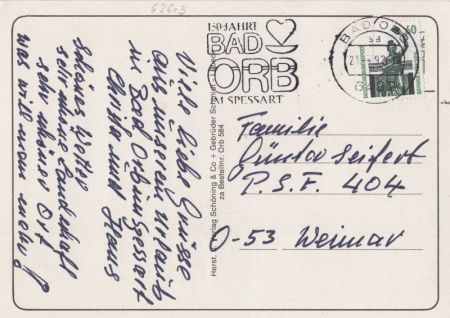 62619
150 JAHRE
BAD
ORB
IM SPESSART
BAD ORB
60
Viele liebe Grüsse
aus unserem Urlaub
in Bad Orb im Spessart
und Hans
Schönes Wetter
sehr schöne Landschaft
sehr schöner Ort
was will man mehr!
Herst. Verlag Schöning & Co + Gebrüder Schmidt
za Bestellnr. Orb 584
Familie
Günter Seifert
P.S.F. 404
O-53 Weimar